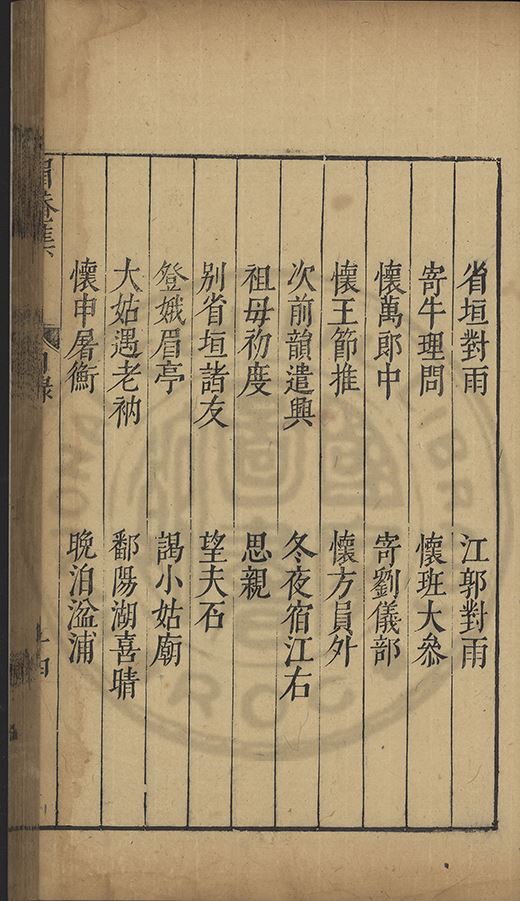 省垣對雨　江郭對雨
寄牛理問　懷班大叅
懷萬郎中　寄劉儀部
懷王節推　懷方員外
次前韻遣興　冬夜宿江右
祖母初度　思親
別省垣諸友　望夫石
登娥眉亭　謁小姑廟
大姑遇老衲　鄱陽湖喜晴
懷申屠衡　晚泊湓浦
目録